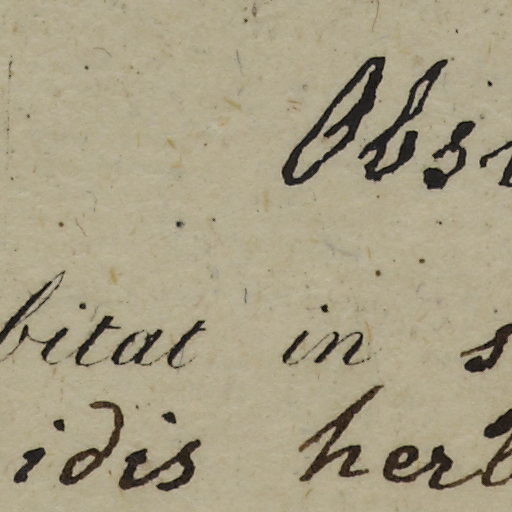 Obs
bitat in s
idis herb